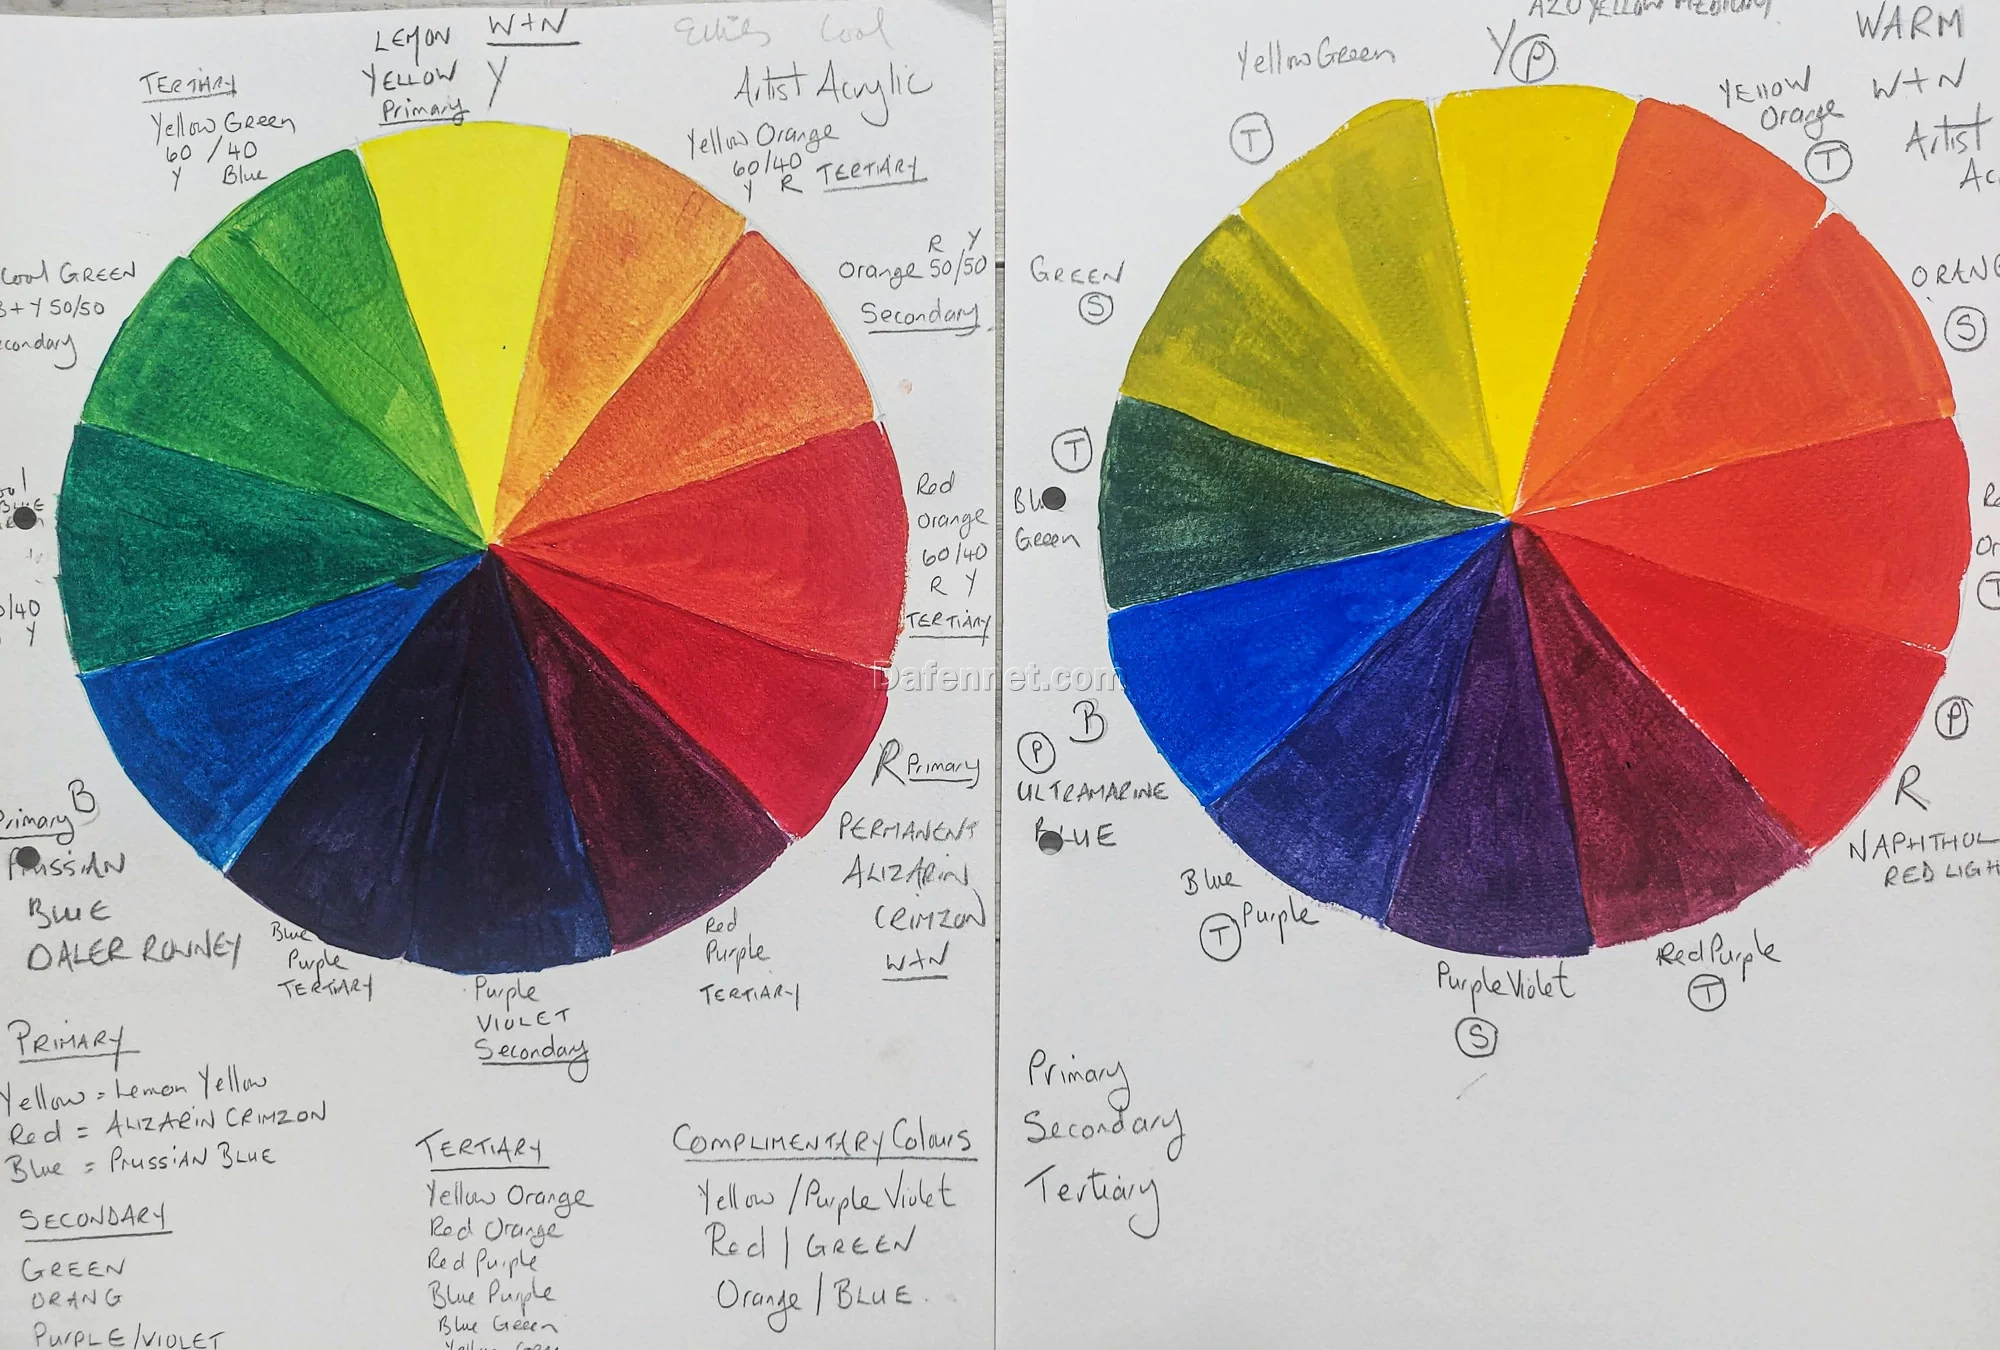 LEMON W+N
YELLOW Y
Primary
Cool
Artist Acrylic
TERTIARY
Yellow Green
60 / 40
Y Blue
Yellow Orange
60/40
Y R TERTIARY
R Y
Orange 50/50
Secondary
Cool GREEN
B + Y 50/50
econdary
Red
Orange
60/40
R Y
TERTIARY
0/40
Y
R Primary
PERMANENT
ALIZARIN
CRIMZON
W+N
B
Primary
PRUSSIAN
BLUE
DALER ROWNEY
Blue
Purple
TERTIARY
Purple
VIOLET
Secondary
Red
Purple
TERTIARY
PRIMARY
Yellow = Lemon Yellow
Red = ALIZARIN CRIMZON
Blue = PRUSSIAN BLUE
SECONDARY
GREEN
ORANG
PURPLE/VIOLET
TERTIARY
Yellow Orange
Red Orange
Red Purple
Blue Purple
Blue Green
COMPLIMENTARY Colours
Yellow / Purple Violet
Red | GREEN
Orange / BLUE.
AZO YELLOW MEDIUM
Y P
WARM
W+N
Artist
Ac
Yellow Green
T
YEllOW
Orange
T
GREEN
S
ORANG
S
T
Green
Re
Or
T
B
P
ULTRAMARINE
BLUE
P
R
NAPHTHOL
RED LIGH
Blue
T Purple
Purple Violet
S
Red Purple
T
Primary
Secondary
Tertiary
Dafennet.com